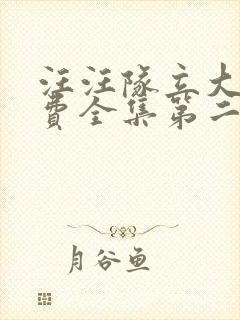 汪汪隊立大
費全集第二
月谷鱼